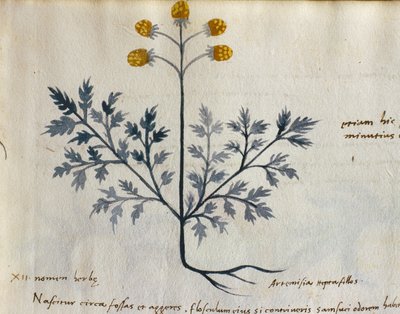 etiam hic
minutius
XII. nomen herbę
Artemisia leptafillos
Nascitur circa fossas et aggeres. flosculum eius si contriveris sansuci odorem habet